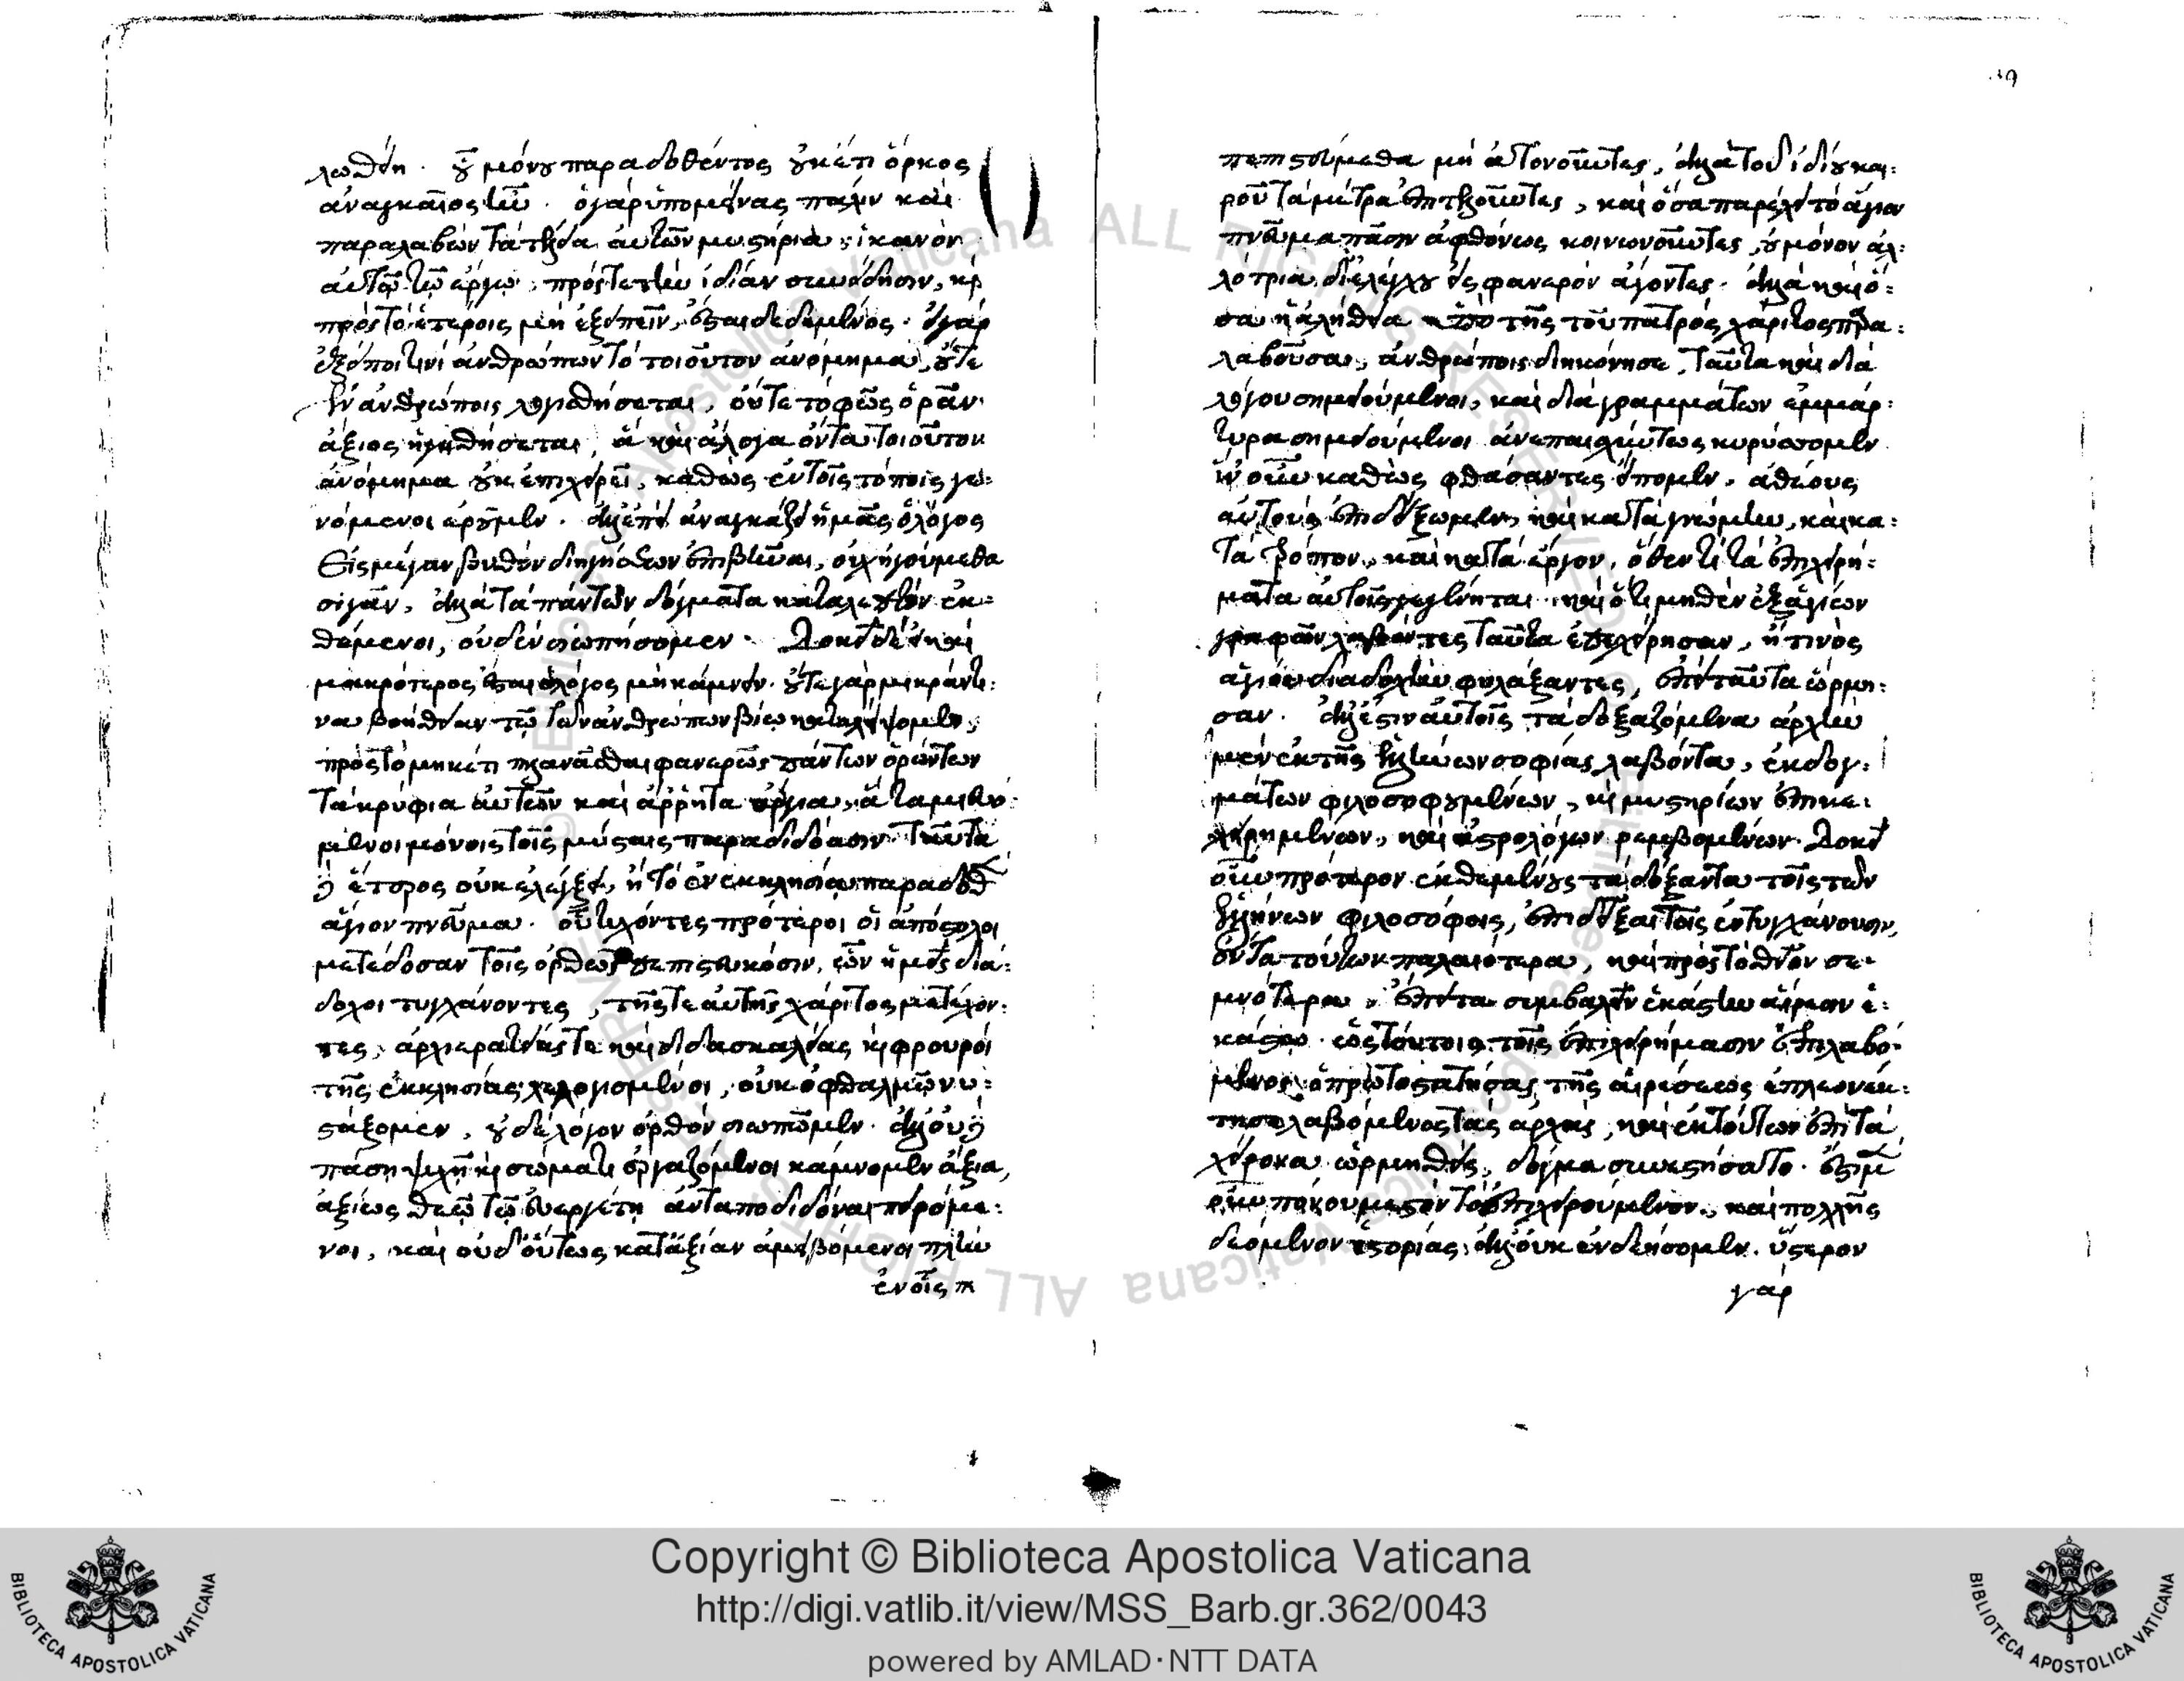 λωθείη. οὗ μόνου παραδοθέντος οὐκέτι ὅρκος
ἀναγκαῖος ἦν. ὁ γὰρ ὑπομείνας παθεῖν καὶ
παραλαβὼν τὰ τέλεια αὐτῶν μυστήρια, ἱκανὸν
αὐτῶ τῶ ἔργω, πρός τε τὴν ἰδίαν συνείδησιν, καὶ
πρὸς τὸ ἑτέροις μὴ ἐξειπεῖν, ἔσται δεδεμένος. εἰ γὰρ
ἐξείποι τινὶ ἀνθρώπων τὸ τοιοῦτον ἀνόμημα, οὔτε
ἐν ἀνθρώποις λογισθήσεται, οὔτε τὸ φῶς ὁρᾶν
ἄξιος ἡγηθήσεται, ἃ καὶ ἄλογα ὄντα τοιοῦτον
ἀνόμημα οὐκ ἐπιχειρεῖ, καθὼς ἐν τοῖς τόποις γε-
νόμενοι ἐροῦμεν. ἀλλ' ἐπεὶ ἀναγκάζει ἡμᾶς ὁ λόγος
εἰς μέγαν βυθὸν διηγήσεων ἐπιβῆναι, οὐχ ἡγούμεθα
σιγᾶν, ἀλλὰ τὰ πάντων δόγματα καταλεπτὸν ἐκ-
θέμενοι, οὐδὲν σιωπήσομεν. Δοκεῖ δὲ εἰ καὶ
μακρότερος ἔσται ὁ λόγος μὴ καμεῖν. οὔτε γὰρ μικράν τι-
να βοήθειαν τῶ τῶν ἀνθρώπων βίω καταλείψομεν,
πρὸς τὸ μηκέτι πλανᾶσθαι φανερῶς πάντων ὁρώντων
τὰ κρύφια αὐτῶν καὶ ἄρρητα ὄργια, ἃ ταμιευό-
μενοι μόνοις τοῖς μύσταις παραδιδόασιν. Ταῦτα
δὲ ἕτερος οὐκ ἐλέγξει, ἢ τὸ ἐν ἐκκλησία παραδοθὲν
ἅγιον πνεῦμα. οὗ τυχόντες πρότεροι οἱ ἀπόστολοι
μετέδοσαν τοῖς ὀρθῶς πεπιστευκόσιν, ὧν ἡμεῖς διά-
δοχοι τυγχάνοντες, τῆς τε αὐτῆς χάριτος μετέχον-
τες, ἀρχιερατείας τε καὶ διδασκαλίας καὶ φρουροὶ
τῆς ἐκκλησίας λελογισμένοι, οὐκ ὀφθαλμῶν νυ-
στάζομεν, οὐδὲ λόγον ὀρθὸν σιωπῶμεν. ἀλλ' οὐδὲ
πάση ψυχῆ καὶ σώματι ἐργαζόμενοι κάμνομεν ἄξια,
ἀξίως θεῶ τῶ εὐεργέτη ἀνταποδιδόναι πειρώμε-
νοι, καὶ οὐδ' οὕτως κατ' ἀξίαν ἀμειβόμενοι πλὴν
ἐν οἷς π
πεπιστεύμεθα μὴ ἀτονοῦντες, ἀλλὰ τοῦ ἰδίου και-
ροῦ τὰ μέτρα ἐπιτελοῦντες, καὶ ὅσα παρέχει τὸ ἅγιον
πνεῦμα πᾶσιν ἀφθόνως κοινωνοῦντες, οὐ μόνον ἀλ-
λότρια δι' ἐλέγχου εἰς φανερὸν ἄγοντες. ἀλλὰ καὶ ὅ-
σα ἡ ἀλήθεια ὑπὸ τῆς τοῦ πατρὸς χάριτος παρα-
λαβοῦσα, ἀνθρώποις διηκόνησε, ταῦτα καὶ διὰ
λόγου σημειούμενοι, καὶ διὰ γραμμάτων ἐμμάρ-
τυρα σημειούμενοι ἀνεπαισχύντως κηρύσσομεν.
ἵν' οὖν καθὼς φθάσαντες εἴπομεν, ἀθέους
αὐτοὺς ἐπιδείξωμεν, καὶ κατὰ γνώμην, καὶ κα-
τὰ τρόπον, καὶ κατὰ ἔργον, ὅθεν τε τὰ ἐπιχειρή-
ματα αὐτοῖς γεγένηται. καὶ ὅτι μηθὲν ἐξ ἁγίων
γραφῶν λαβόντες ταῦτα ἐπεχείρησαν, ἤ τινος
ἁγίου διαδοχὴν φυλάξαντες, ἐπὶ ταῦτα ὥρμη-
σαν. ἀλλ' ἔστιν αὐτοῖς τὰ δοξαζόμενα ἀρχὴν
μὲν ἐκ τῆς Ἑλλήνων σοφίας λαβόντα, ἐκ δογ-
μάτων φιλοσοφουμένων, καὶ μυστηρίων ἐπικε-
χειρημένων, καὶ ἀστρολόγων ρεμβομένων. Δοκεῖ
οὖν πρότερον ἐκθεμένους τὰ δόξαντα τοῖς τῶν
Ἑλλήνων φιλοσόφοις, ἐπιδεῖξαι τοῖς ἐντυγχάνουσιν,
ὄντα τούτων παλαιότερα, καὶ πρὸς τὸ θεῖον σε-
μνότερα, ἔπειτα συμβαλεῖν ἑκάστην αἵρεσιν ἑ-
κάστω. ὡς τούτοις τοῖς ἐπιχειρήμασιν ἐπιλαβό-
μενος ὁ πρωτοστατήσας τῆς αἱρέσεως ἐπλεονέκ-
τησε λαβόμενος τὰς ἀρχὰς, καὶ ἐκ τούτων ἐπὶ τὰ
χείρονα ὁρμηθεὶς, δόγμα συνεστήσατο. ἔστι μὲν
οὖν πόνου μεστὸν τὸ ἐπιχειρούμενον, καὶ πολλῆς
δεόμενον ἱστορίας, ἀλλ' οὐκ ἐνδεήσομεν. ὕστερον
γὰρ
Copyright © Biblioteca Apostolica Vaticana
http://digi.vatlib.it/view/MSS_Barb.gr.362/0043
powered by AMLAD·NTT DATA
BIBLIOTECA APOSTOLICA VATICANA
BIBLIOTECA APOSTOLICA VATICANA